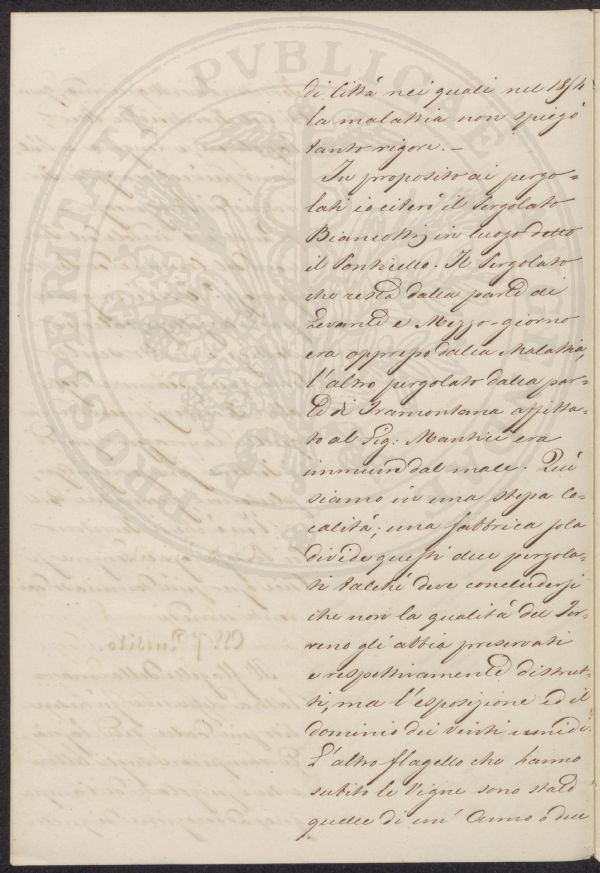 di Città nei quali nel 1854
la malattia non spiegò
tanto rigore. –
In proposito ai pergo=
lati io citerò il Pergolato
Biancotti in luogo detto
il Ponticello. Il Pergolato
che resta dalla parte di
Levante e Mezzo-giorno
era appreso dalla Malattia,
l'altro pergolato dalla par=
te di Tramontana affitta=
to al Sig: Mantici era
immune dal male. Qui
siamo in una stessa lo=
calità, una fabbrica sola
divide questi due pergola=
ti talché deve concludersi
che non la qualità del Ter=
reno gli abbia preservati
e respettivamente distrut=
ti, ma l'esposizione ed il
dominio dei venti umidi.
L'altro flagello che hanno
subito le Vigne sono state
quelle di un' Anno o due
PROSPERITATI PVBLICAE